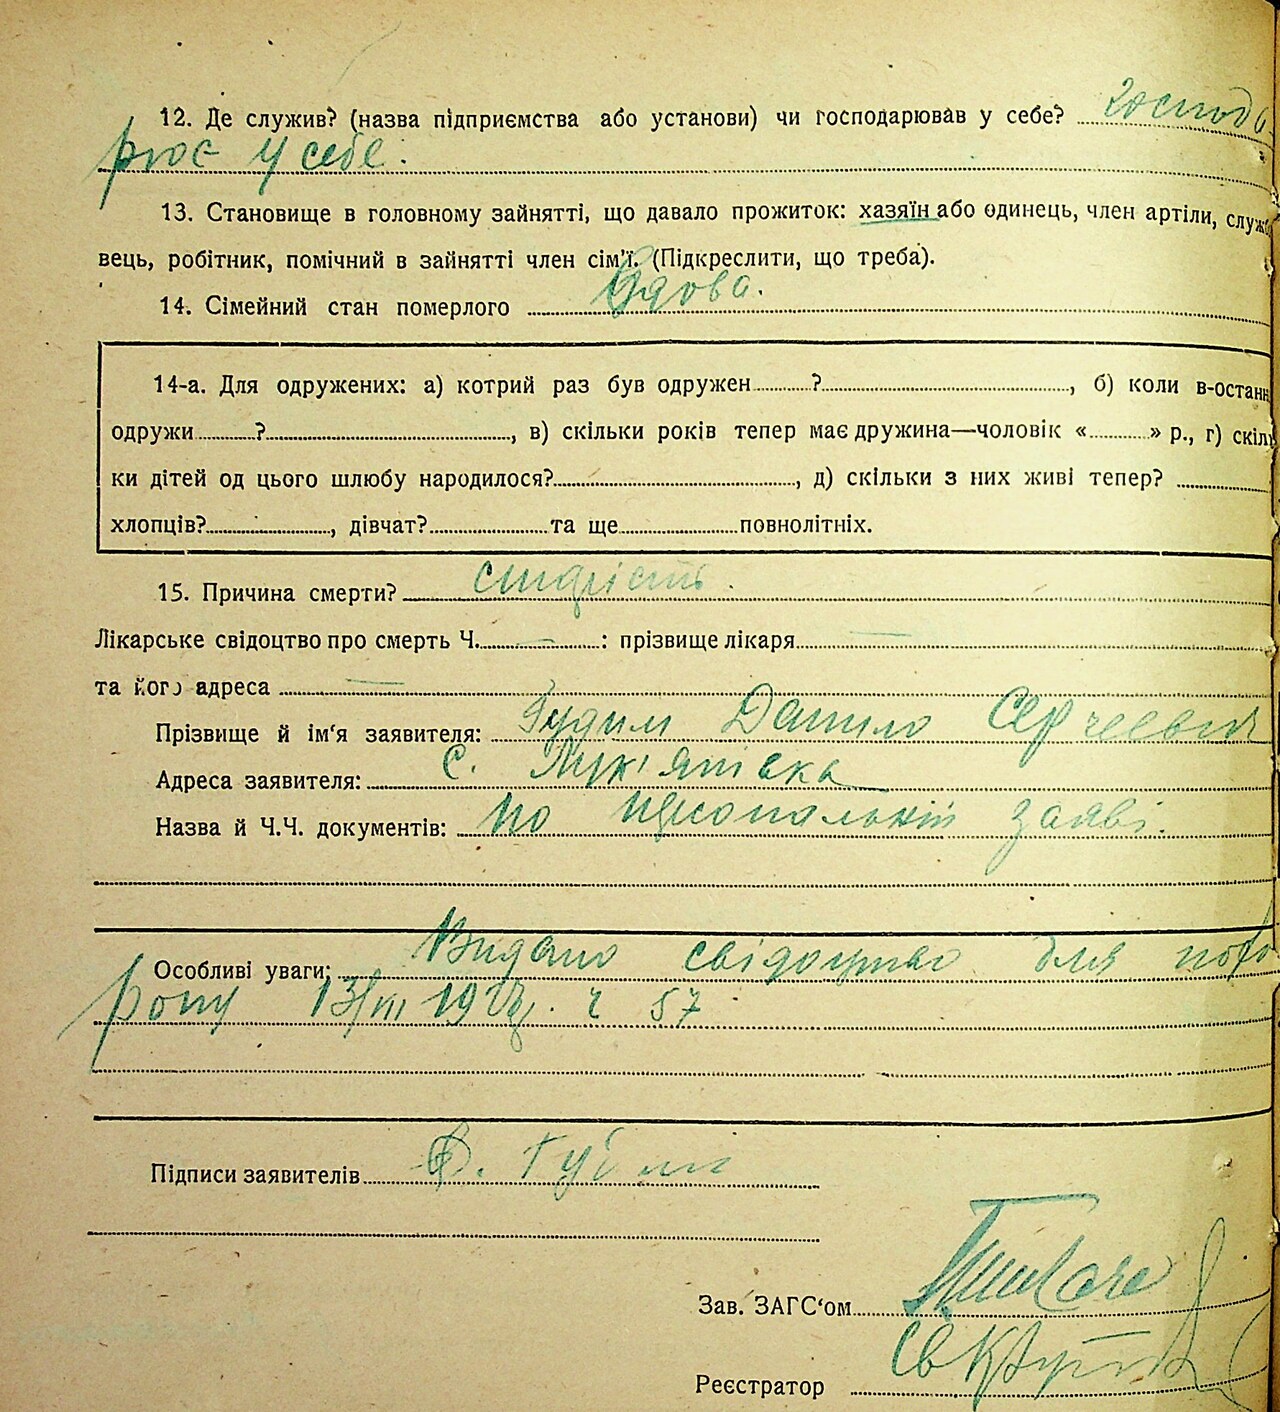 12. Де служив? (назва підприємства або установи) чи господарював у себе? господа
рює у себе.
13. Становище в головному зайнятті, що давало прожиток: хазяїн або одинець, член артіли, служб
вець, робітник, помічний в зайнятті член сім'ї. (Підкреслити, що треба).
14. Сімейний стан померлого Вдова.
14-а. Для одружених: а) котрий раз був одружен ? , б) коли в-останн
одружи ? , в) скільки років тепер має дружина—чоловік « » р., г) скіль
ки дітей од цього шлюбу народилося? , д) скільки з них живі тепер?
хлопців? , дівчат? та ще повнолітніх.
15. Причина смерти? старість.
Лікарське свідоцтво про смерть Ч. — : прізвище лікаря —
та його адреса —
Прізвище й ім'я заявителя: Гудим Данило Сергеевич
Адреса заявителя: С. Лук'янівка
Назва й Ч.Ч. документів: по персональній заяві.
Особливі уваги: Видано свідоцтво для похо
рону ч 57
Підписи заявителів Гудим
Зав. ЗАГС'ом
Реєстратор